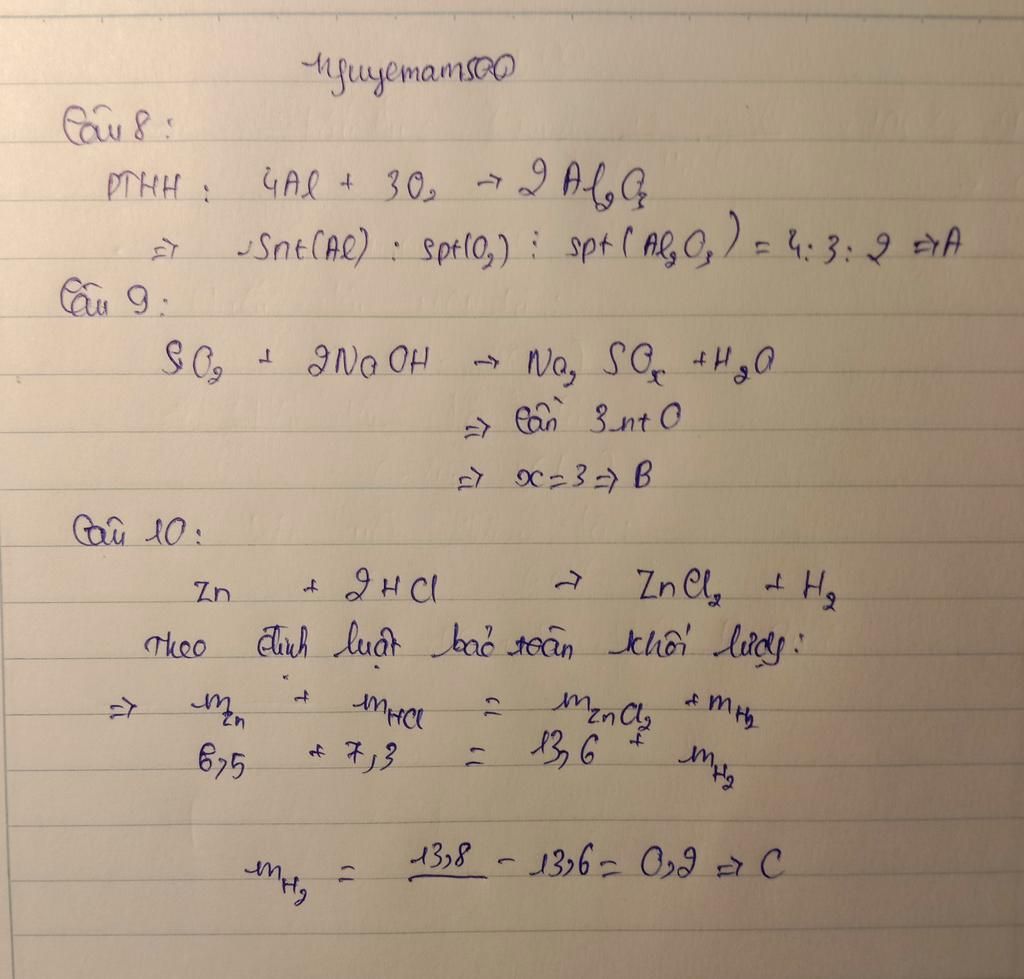 nguyemam500
Câu 8:
PTHH: 4Al + 3O₂ → 2Al₂O₃
⇒ Snt(Al) : Spt(O₂) : spt(Al₂O₃) = 4:3:2 ⇒ A
Câu 9:
SO₂ + 2NaOH → Na₂SOₓ + H₂O
⇒ Cần 3 nt O
⇒ x = 3 ⇒ B
Câu 10:
Zn + 2HCl → ZnCl₂ + H₂
Theo định luật bảo toàn khối lượng:
⇒ m_Zn + m_HCl = m_ZnCl₂ + m_H₂
6,5 + 7,3 = 13,6 + m_H₂
m_H₂ = 13,8 - 13,6 = 0,2 ⇒ C